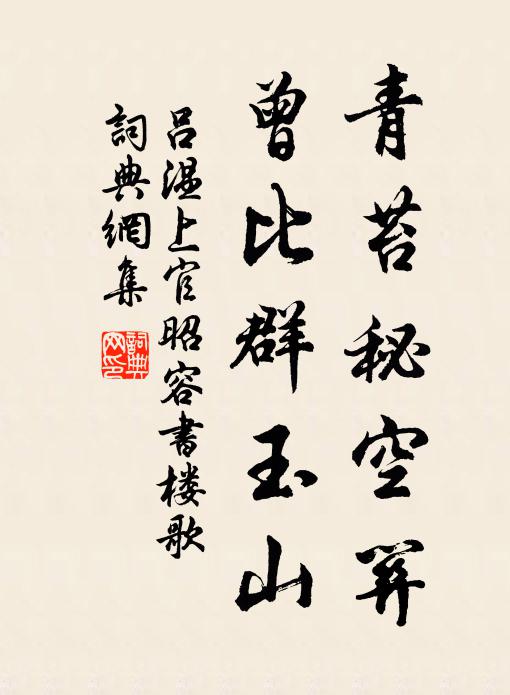 青苔秘空關
曾比群玉山
吕温上官昭容書楼歌
詞典網集
詞典网印